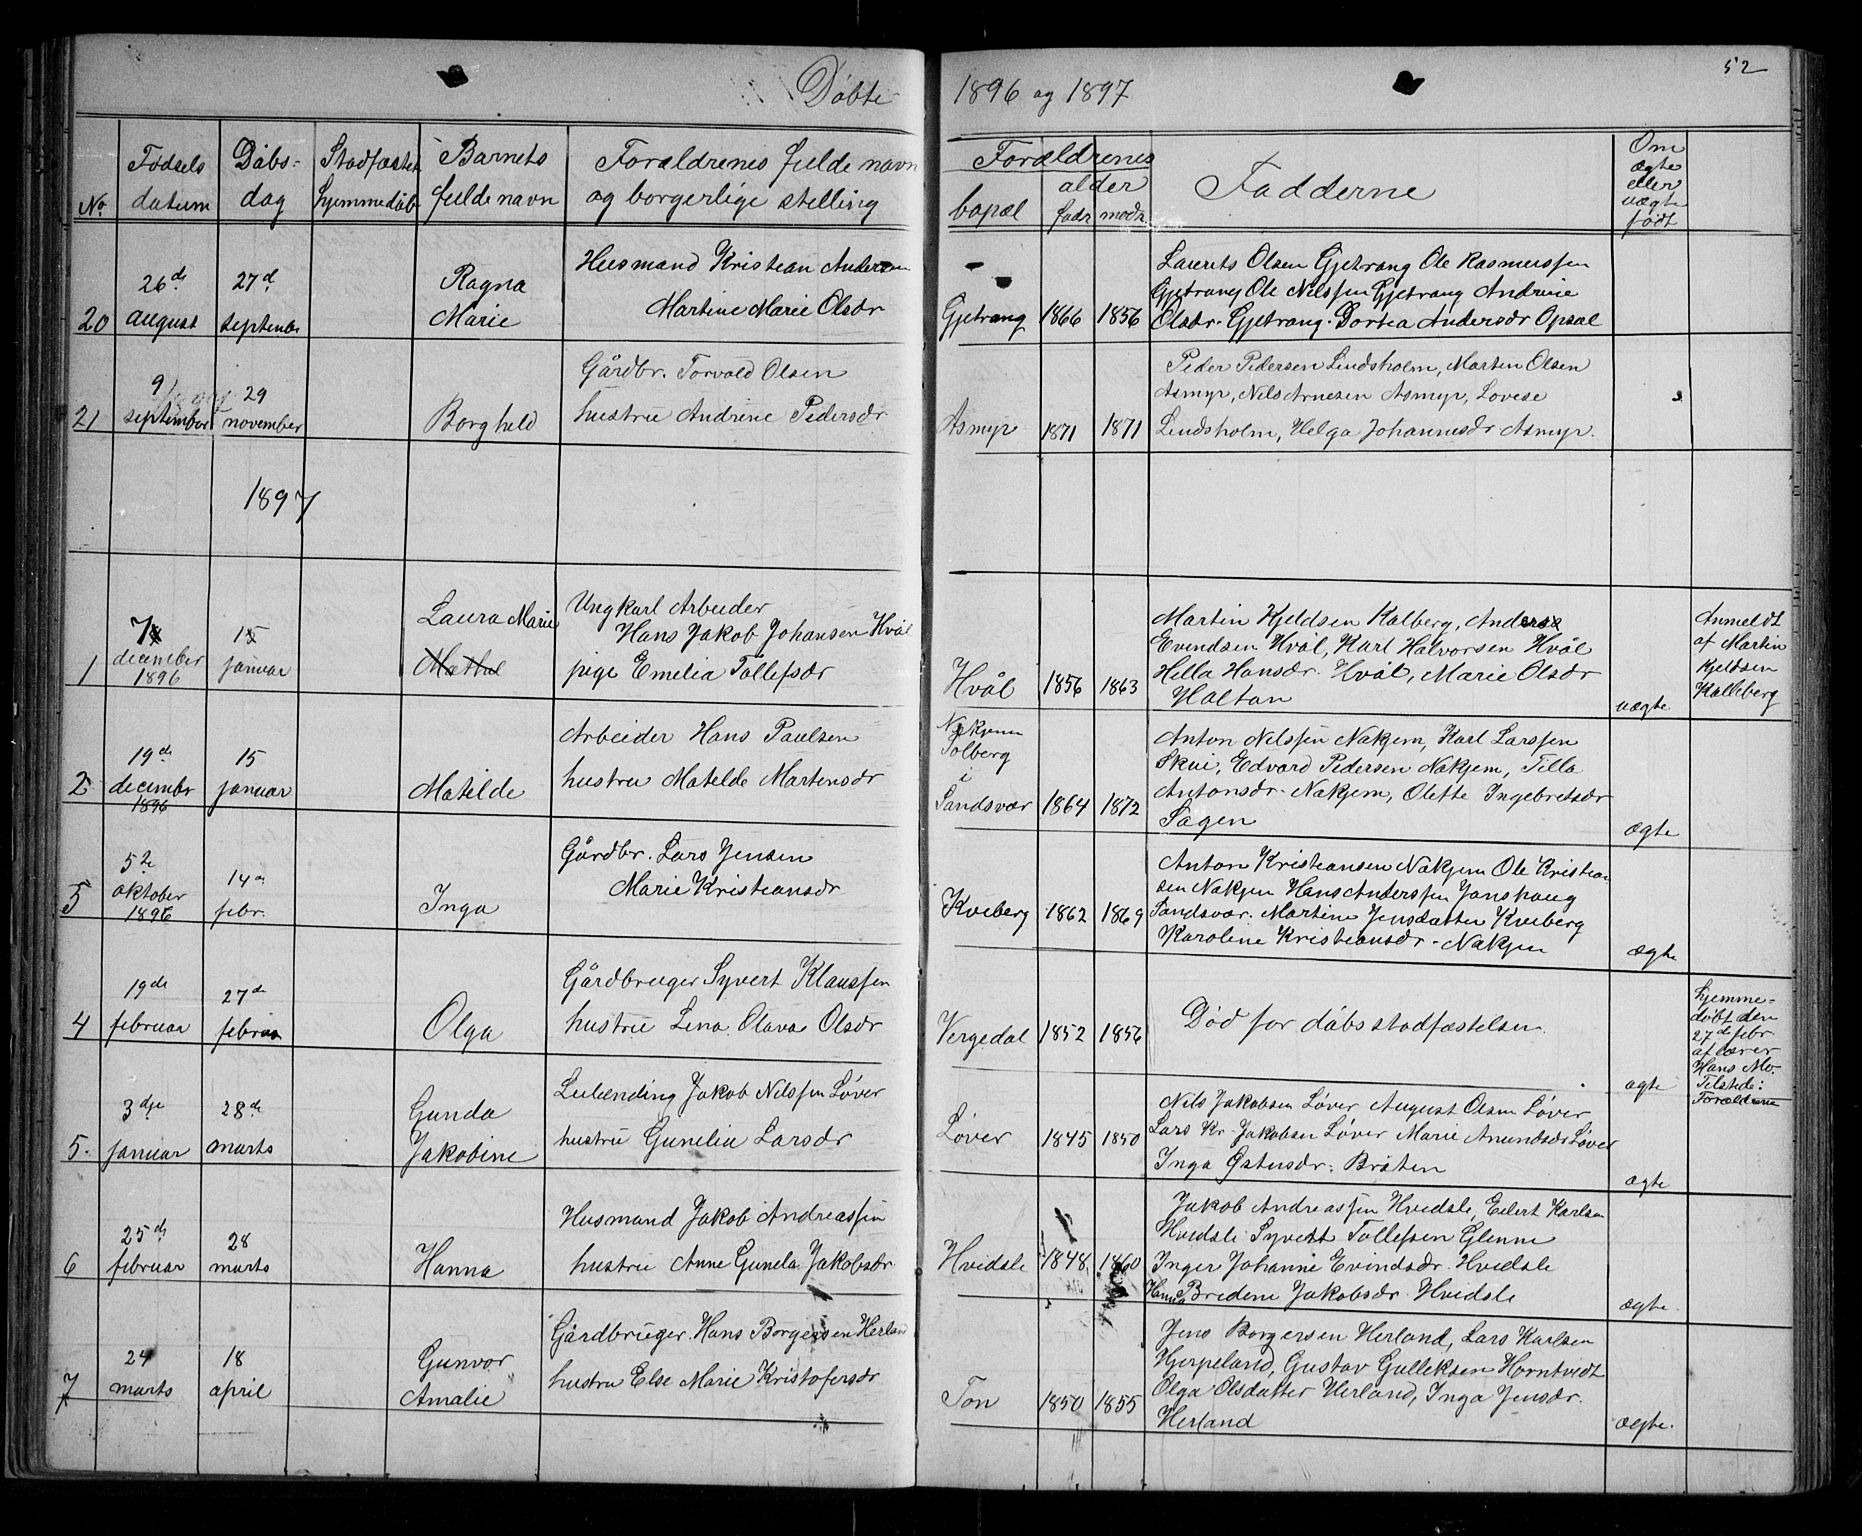 Döbte 1896 og 1897
52
No. Fødsels datum Döbs-dag Stadfæstet hjemmedåb Barnets fulde navn Forældrenes fulde navn og borgerlige stelling
Forældrenes bopæl alder fadr modr Fadderne Om ægte eller uægte født
20 26de august 27d septembr Ragna Marie
Husmand Kristian Andersen
Martine Marie Olsdr
Gjetrang 1866 1856
Laurits Olsen Gjetrang Ole Rasmussen
Gjetrang Ole Nilssen Gjetrang Andrine
Olsdr. Gjetrang. Dortea Andersdr Opsal
21 9 september 29 november Borghild
Gårdbr. Torvald Olsen
hustru Andrine Pedersdr
Asmyr 1871 1871
Peder Pedersen Lindsholm, Martin Olsen
Asmyr, Nils Arnesen Asmyr, Lovise
Lindsholm, Helga Johannesdr Asmyr.
1897
1 7 december 1896 15 januar Laura Marie
Ungkarl Arbeider
Hans Jakob Johansen Hvål
pige Emelia Tollefsdr
Hvål 1856 1863
Martin Kjeldsen Kalberg, Anders
Evindsen Hvål, Karl Halvorsen Hvål
Hella Hansdr. Hvål, Marie Olsdr
Holtan
uægte
Anmeldt
af Martin
Kjeldsen
Kalleberg
2 19de decembr 1896 15 januar Matilde
Arbeider Hans Paulsen
hustru Matelde Martensdr
Nakjem
Tolberg
i
Sandsvær 1864 1872
Anton Nilssen Nakjem, Karl Larssen
Skue, Edvard Pedersen Nakjem, Tilla
Antonsdr. Nakjem, Olette Ingebretsdr
Sagen
ægte
3 5te oktober 1896 14de febr. Inga
Gårdbr. Lars Jensen
Marie Kristiansdr
Kveberg 1862 1869
Anton Kristiansen Nakjem Ole Kristian
sen Nakjem Hans Anderssen Jonshaug
Sandsvær. Martine Jensdatter Kveberg
Karoline Kristiansdr. Nakjem
ægte
4 19de februar 27de februar Olga
Gårdbruger Syvert Klaussen
hustru Lena Olava Olsdr
Vergedal 1852 1856
Död for dåbs stadfæstelsen.
ægte
hjemme-
döbt den
27de febr
af lærer
Hans Mo.
Tilstede:
Forældrene
5. 3dje januar 28de marts Gunda Jakobine
Leilænding Jakob Nilssen Löver
hustru Gunelia Larsdr
Löver 1845 1850
Nils Jakobsen Löver August Olsen Löver
Lars Kr. Jakobsen Löver Marie Amundsdr Löver
Inga Östensdr. Bråten
ægte
6 25de februar 28 marts Hanna
Husmand Jakob Andreassen
hustru Anne Gunela Jakobsdr
Hvidsle 1848 1860
Jakob Andreassen Hvidsle, Eilert Karlsen
Hvidsle Syvert Tollefsen Glenne
Inger Johanne Evindsdr. Hvidsle
Hanna Bredine Jakobsdr. Hvidsle
ægte.
7 24 marts 18 april Gunvor Amalie
Gårdbruger. Hans Borgersen Herland
hustru Else Marie Kristofersdr
Ton 1850 1855
Jens Borgersen Herland, Lars Karlsen
Hjerpeland, Gustav Gulleksen Horntvedt
Olga Olsdatter Herland, Inga Jensdr.
Herland
ægte.